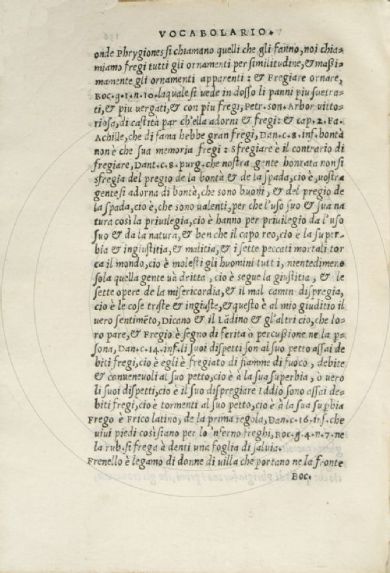 VOCABOLARIO.
onde Phrygiones si chiamano quelli che gli fanno, noi chia-
miamo fregi tutti gli ornamenti per similitudine, & maßi-
mamente gli ornamenti apparenti: & Fregiare ornare,
Boc. g. 1. n. 10. laquale si vede in dosso li panni piu screzia-
ti, & piu vergati, & con piu fregi, Petr. son. Arbor vitto-
riosa, di castità par ch'ella adorni & fregi: & cap. 2. Fa.
Achille, che di fama hebbe gran fregi, Dan. c. 8. inf. bontà
non è che sua memoria fregi: sfregiare è il contrario di
fregiare, Dant. c. 8. purg. che nostra gente honrata non si
sfregia del pregio de la borsa & de la spada, cio è, vostra
gente si adorna di bontà, che sono buoni, & del pregio de
la spada, cio è, che sono valenti, per che l'uso suo & sua na
tura cosi la priuilegia, cio è hanno per priuilegio da l'uso
suo & da la natura, & ben che il capo reo, cio è la super-
bia & ingiustitia, & malitia, & i sette peccati mortali tor-
ca il mondo, cio è molesti gli huomini tutti, nientedimeno
sola quella gente uà dritta, cio è segue la giustitia, & le
sette opere de la misericordia, & il mal camin dispregia,
cio è le cose triste & ingiuste, & questo è al mio giuditio il
vero sentimẽto, Dicano & il Lãdino & gl'altri cio, che lo-
ro pare, & Fregio è segno di ferita ò percussione ne la p̱
sona, Dan. c. 14. inf. li suoi dispetti son al suo petto assai de
biti fregi, cio è egli è fregiato di fiamme di fuoco, debite
& conueneuoli al suo petto, cio è à la sua superbia, ò uero
li suoi dispetti, cio è il suo dispregiare Iddio sono assai de-
biti fregi, cio è tormenti al suo petto, cio è à la sua suꝑbia
Frego è Frico latino, de la prima regola, Dan. c. 16. inf. che
uiui piedi cosi stano per lo 'nferno freghi, Boc. g. 4. n. 7. ne
la rub. si frega à denti una foglia di saluia.
Frenello è legame di donne di uilla che portano ne la fronte
Boc.